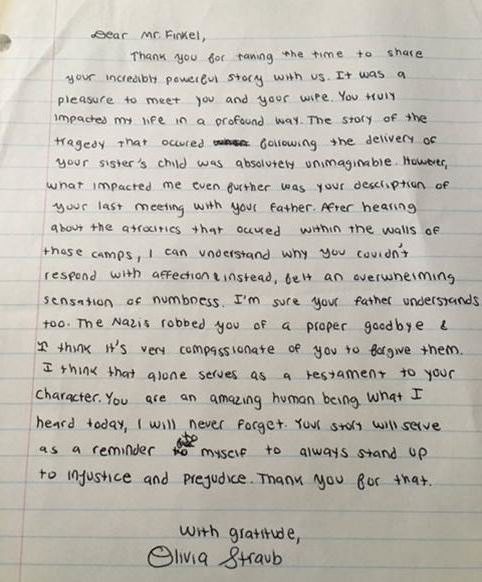 Dear Mr. Finkel,
Thank you for taking the time to share
your incredibly powerful story with us. It was a
pleasure to meet you and your wife. You truly
impacted my life in a profound way. The story of the
tragedy that occured following the delivery of
your sister's child was absolutely unimaginable. However,
what impacted me even further was your description of
your last meeting with your father. After hearing
about the atrocities that occured within the walls of
those camps, I can understand why you couldn't
respond with affection & instead, felt an overwhelming
sensation of numbness. I'm sure your father understands
too. The Nazis robbed you of a proper goodbye &
I think it's very compassionate of you to forgive them.
I think that alone serves as a testament to your
character. You are an amazing human being what I
heard today, I will never forget. Your story will serve
as a reminder to myself to always stand up
to injustice and prejudice. Thank you for that.
With gratitude,
Olivia Straub